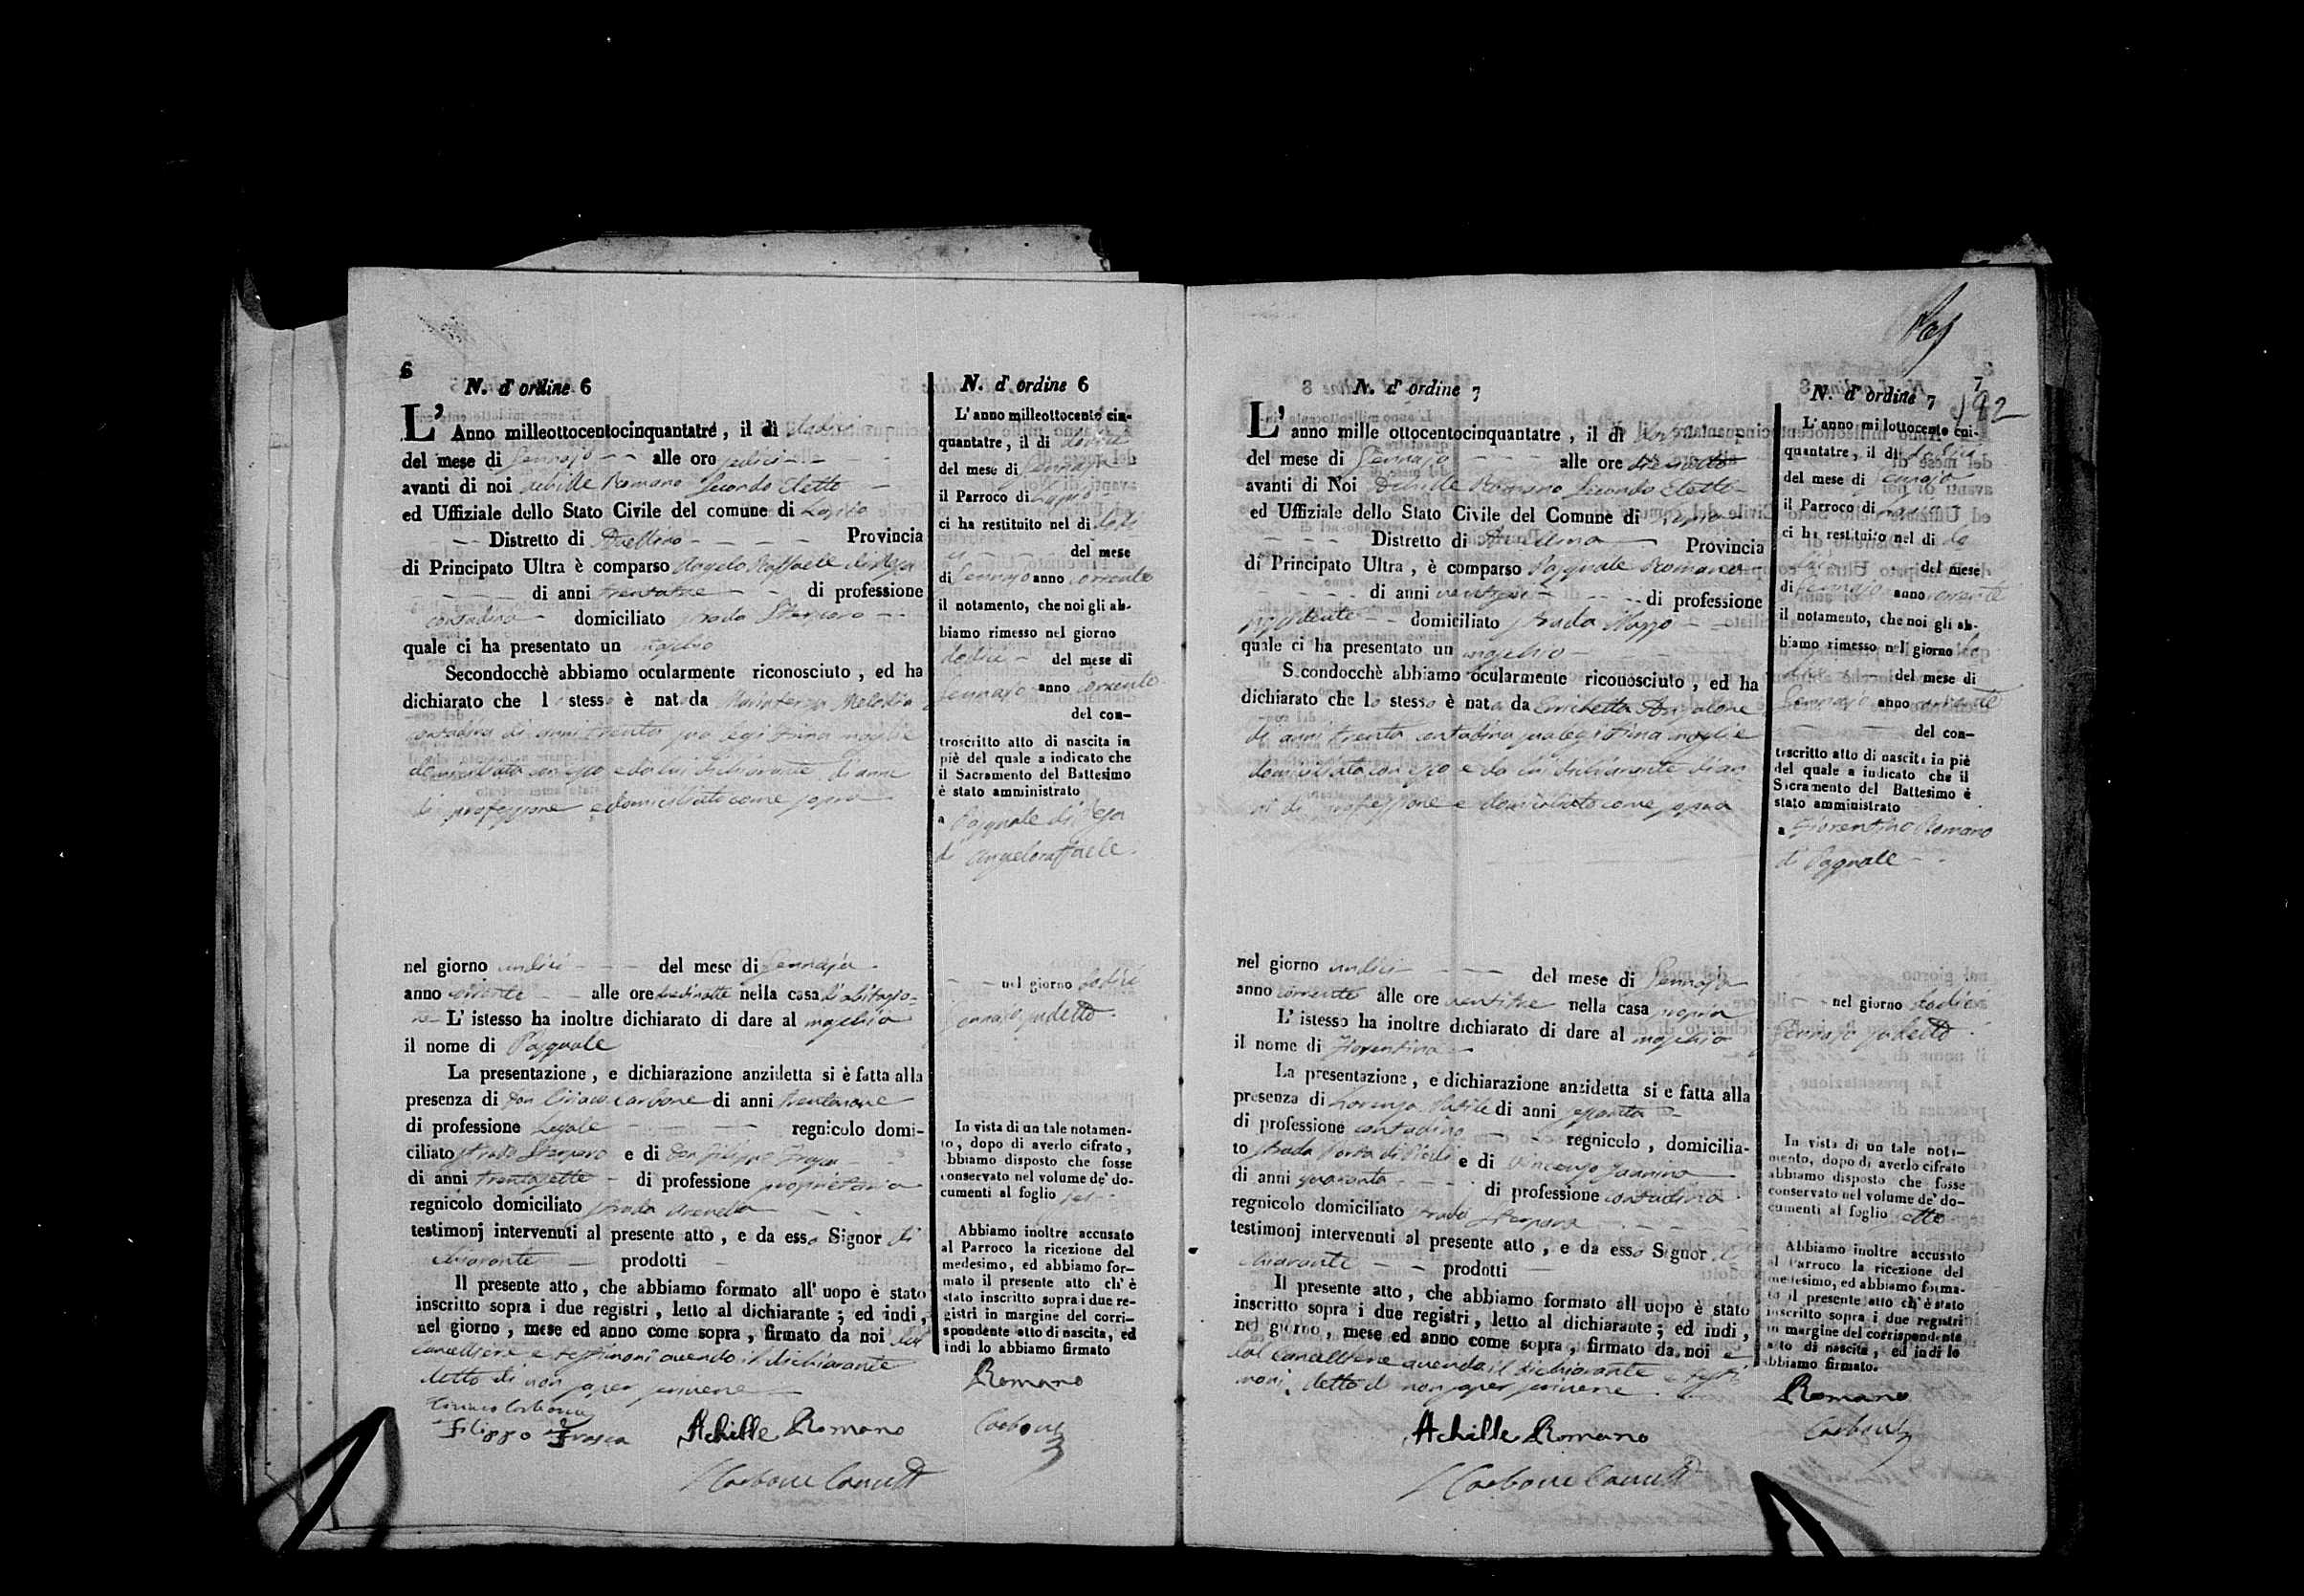 6
N. d' ordine 6
L' Anno milleottocentocinquantatré, il dì dodici
del mese di Gennajo alle ore sedici
avanti di noi Achille Romano Secondo Eletto
ed Uffiziale dello Stato Civile del comune di
Distretto di Avellino Provincia
di Principato Ultra è comparso Angelo Raffaele di
di anni trentatre di professione
contadino domiciliato strada
quale ci ha presentato un maschio
Secondocchè abbiamo ocularmente riconosciuto, ed ha
dichiarato che l stesso è nat da
contadina di anni trenta sua legittima moglie
domiciliata con esso e da lui dichiarante di anni
di professione e domiciliato come sopra
nel giorno undici del mese di Gennajo
anno corrente alle ore diecinotte nella casa d'abitazio=
ne L' istesso ha inoltre dichiarato di dare al maschio
il nome di Pasquale
La presentazione, e dichiarazione anzidetta si è fatta alla
presenza di Don Ciriaco Carbone di anni trentanove
di professione Legale regnicolo domi-
ciliato strada e di Don Filippo
di anni trentasette di professione proprietario
regnicolo domiciliato strada
testimonj intervenuti al presente atto, e da esso Signor di
chiarante prodotti
Il presente atto, che abbiamo formato all' uopo è stato
inscritto sopra i due registri, letto al dichiarante; ed indi,
nel giorno, mese ed anno come sopra, firmato da noi dal
Cancelliere e testimoni avendo il dichiarante
detto di non saper scrivere
Ciriaco Carbone
Filippo
Achille Romano
Carbone Cancell
N. d' ordine 6
L' anno milleottocento cin-
quantatre, il dì dodici
del mese di Gennajo
il Parroco di
ci ha restituito nel dì dodi
ci del mese
di Gennajo anno corrente
il notamento, che noi gli ab-
biamo rimesso nel giorno
dodici del mese di
Gennajo anno corrente
del con-
troscritto atto di nascita in
piè del quale a indicato che
il Sacramento del Battesimo
è stato amministrato
a Pasquale di
di Angeloraffaele.
nel giorno dodici
Gennajo sudetto.
In vista di un tale notamen-
to, dopo di averlo cifrato,
abbiamo disposto che fosse
conservato nel volume de' do-
cumenti al foglio sei
Abbiamo inoltre accusato
al Parroco la ricezione del
medesimo, ed abbiamo for-
mato il presente atto ch' è
stato inscritto sopra i due re-
gistri in margine del corri-
spondente atto di nascita, ed
indi lo abbiamo firmato
Romano
Carbone
N. d' ordine 7
L' anno mille ottocentocinquantatre, il dì
del mese di Gennajo alle ore
avanti di Noi Achille Romano Secondo Eletto
ed Uffiziale dello Stato Civile del Comune di
Distretto di Avellino Provincia
di Principato Ultra, è comparso Pasquale Romano
di anni di professione
domiciliato strada
quale ci ha presentato un maschio
Secondocchè abbiamo ocularmente riconosciuto, ed ha
dichiarato che lo stesso è nato da Enrichetta
di anni trenta contadina sua legittima moglie
domiciliata con esso e da lui dichiarante di an
ni di professione e domiciliato come sopra
nel giorno undici del mese di Gennajo
anno corrente alle ore ventitre nella casa propria
L' istesso ha inoltre dichiarato di dare al maschio
il nome di Fiorentino
La presentazione, e dichiarazione anzidetta si e fatta alla
presenza di Lorenzo di anni sessanta
di professione contadino regnicolo, domicilia-
to strada Porta di e di Vincenzo
di anni quaranta di professione contadino
regnicolo domiciliato strada
testimonj intervenuti al presente atto, e da esso Signor di
chiarante prodotti
Il presente atto, che abbiamo formato all uopo è stato
inscritto sopra i due registri, letto al dichiarante; ed indi,
nel giorno, mese ed anno come sopra, firmato da noi e
dal Cancelliere avendo il dichiarante e testi
moni detto di non saper scrivere
Achille Romano
Carbone Cancell
7
192
N. d' ordine 7
L' anno millottocento cin-
quantatre, il dì dodici
del mese di Gennajo
il Parroco di
ci ha restituito nel dì do
dici del mese
di Gennajo anno corrente
il notamento, che noi gli ab-
biamo rimesso nel giorno do
dici del mese di
Gennajo anno corrente
del con-
troscritto atto di nascita in piè
del quale a indicato che il
Sacramento del Battesimo è
stato amministrato
a Fiorentino Romano
di Pasquale
nel giorno dodici
Gennajo sudetto.
In vista di un tale nota-
mento, dopo di averlo cifrato
abbiamo disposto che fosse
conservato nel volume de' do-
cumenti al foglio otto
Abbiamo inoltre accusato
al Parroco la ricezione del
medesimo, ed abbiamo forma-
to il presente atto ch' è stato
inscritto sopra i due registri
in margine del corrispondente
atto di nascita, ed indi lo
abbiamo firmato.
Romano
Carbone